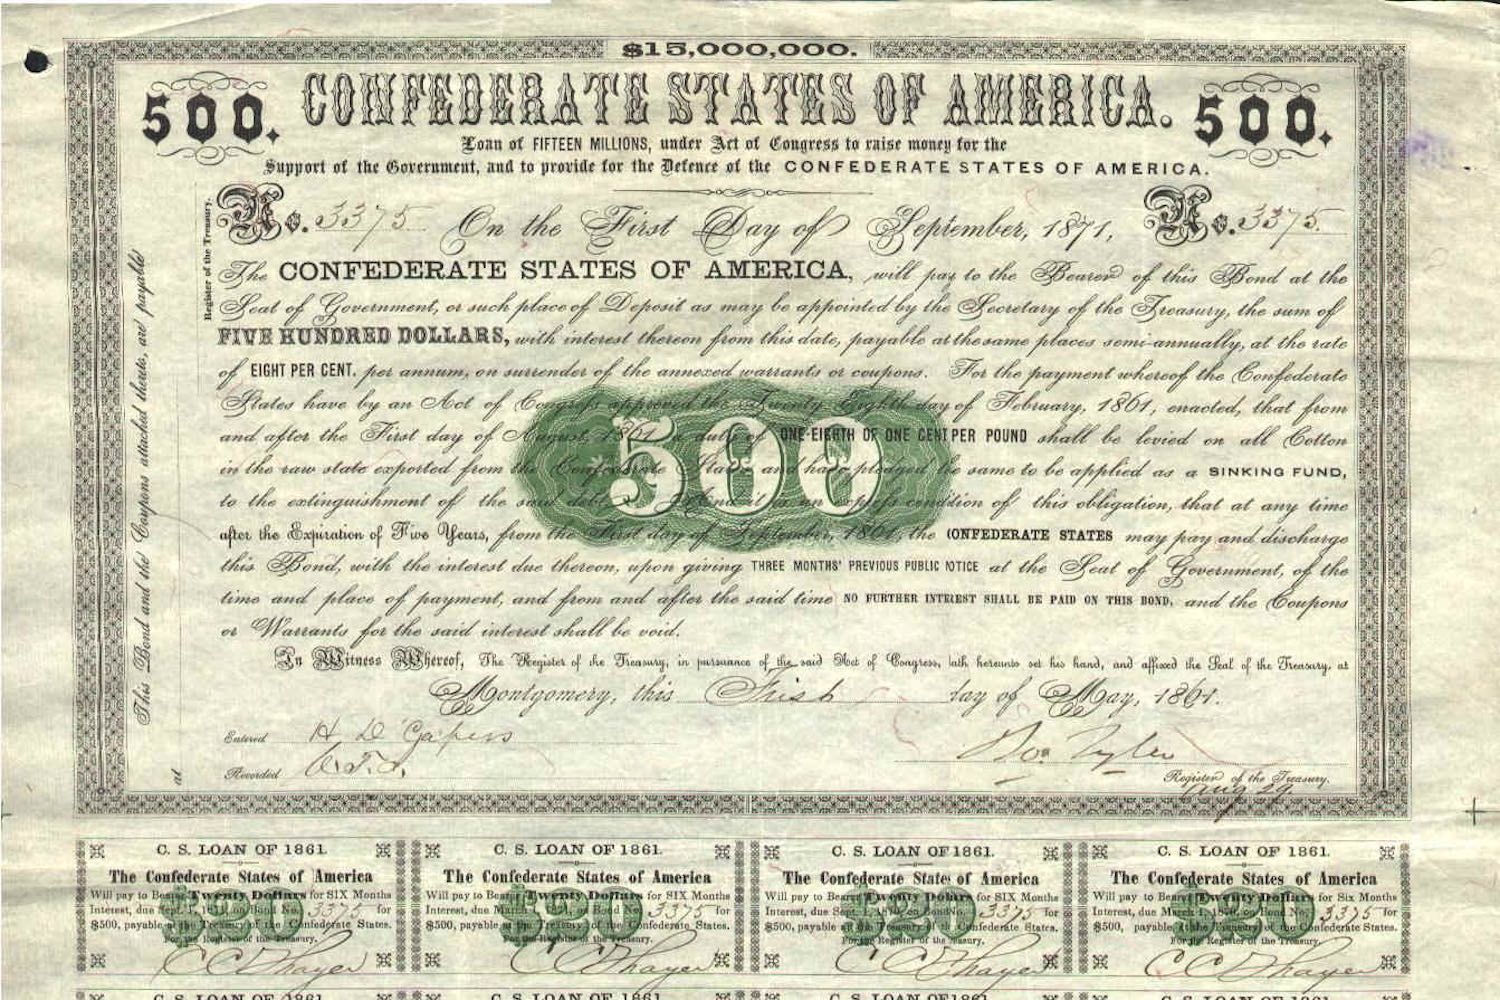 $15,000,000.
500. CONFEDERATE STATES OF AMERICA. 500.
Loan of FIFTEEN MILLIONS, under Act of Congress to raise money for the
Support of the Government, and to provide for the Defence of the CONFEDERATE STATES OF AMERICA.
No. 3375 On the First Day of September, 1871, No. 3375.
The CONFEDERATE STATES OF AMERICA, will pay to the Bearer of this Bond at the
Seat of Government, or such place of Deposit as may be appointed by the Secretary of the Treasury, the sum of
FIVE HUNDRED DOLLARS, with interest thereon from this date, payable at the same places semi-annually, at the rate
of EIGHT PER CENT. per annum, on surrender of the annexed warrants or coupons. For the payment whereof the Confederate
States have by an Act of Congress approved the Twenty Eighth day of February, 1861, enacted, that from
and after the First day of August, 1861 a duty of ONE-EIGHTH OF ONE CENT PER POUND shall be levied on all Cotton
in the raw state exported from the Confederate States and have pledged the same to be applied as a SINKING FUND,
to the extinguishment of the said debt And it is an express condition of this obligation, that at any time
after the Expiration of Five Years, from the First day of September, 1861, the CONFEDERATE STATES may pay and discharge
this Bond, with the interest due thereon, upon giving THREE MONTHS' PREVIOUS PUBLIC NOTICE at the Seat of Government, of the
time and place of payment, and from and after the said time NO FURTHER INTEREST SHALL BE PAID ON THIS BOND, and the Coupons
or Warrants for the said interest shall be void.
500
In Witness Whereof, The Register of the Treasury, in pursuance of the said Act of Congress, hath hereunto set his hand, and affixed the Seal of the Treasury, at
Montgomery, this First day of May, 1861.
Entered H D Capers
Recorded
Register of the Treasury.
Aug 29.
Register of the Treasury.
This Bond and the Coupons attached thereto, are payable
at
C. S. LOAN OF 1861.
The Confederate States of America
Will pay to Bearer Twenty Dollars for SIX Months
Interest, due Sept. 1, on Bond No. 3375 for
$500, payable at the Treasury of the Confederate States.
For the Register of the Treasury.
C C Thayer
$20
C. S. LOAN OF 1861.
The Confederate States of America
Will pay to Bearer Twenty Dollars for SIX Months
Interest, due March 1, on Bond No. 3375 for
$500, payable at the Treasury of the Confederate States.
For the Register of the Treasury.
C C Thayer
$20
C. S. LOAN OF 1861.
The Confederate States of America
Will pay to Bearer Twenty Dollars for SIX Months
Interest, due Sept. 1, 1870, on Bond No. 3375 for
$500, payable at the Treasury of the Confederate States.
For the Register of the Treasury.
C C Thayer
$20
C. S. LOAN OF 1861.
The Confederate States of America
Will pay to Bearer Twenty Dollars for SIX Months
Interest, due March 1, 1870, on Bond No. 3375 for
$500, payable at the Treasury of the Confederate States.
For the Register of the Treasury.
C C Thayer
$20
C. S. LOAN OF 1861.
C. S. LOAN OF 1861.
C. S. LOAN OF 1861.
C. S. LOAN OF 1861.